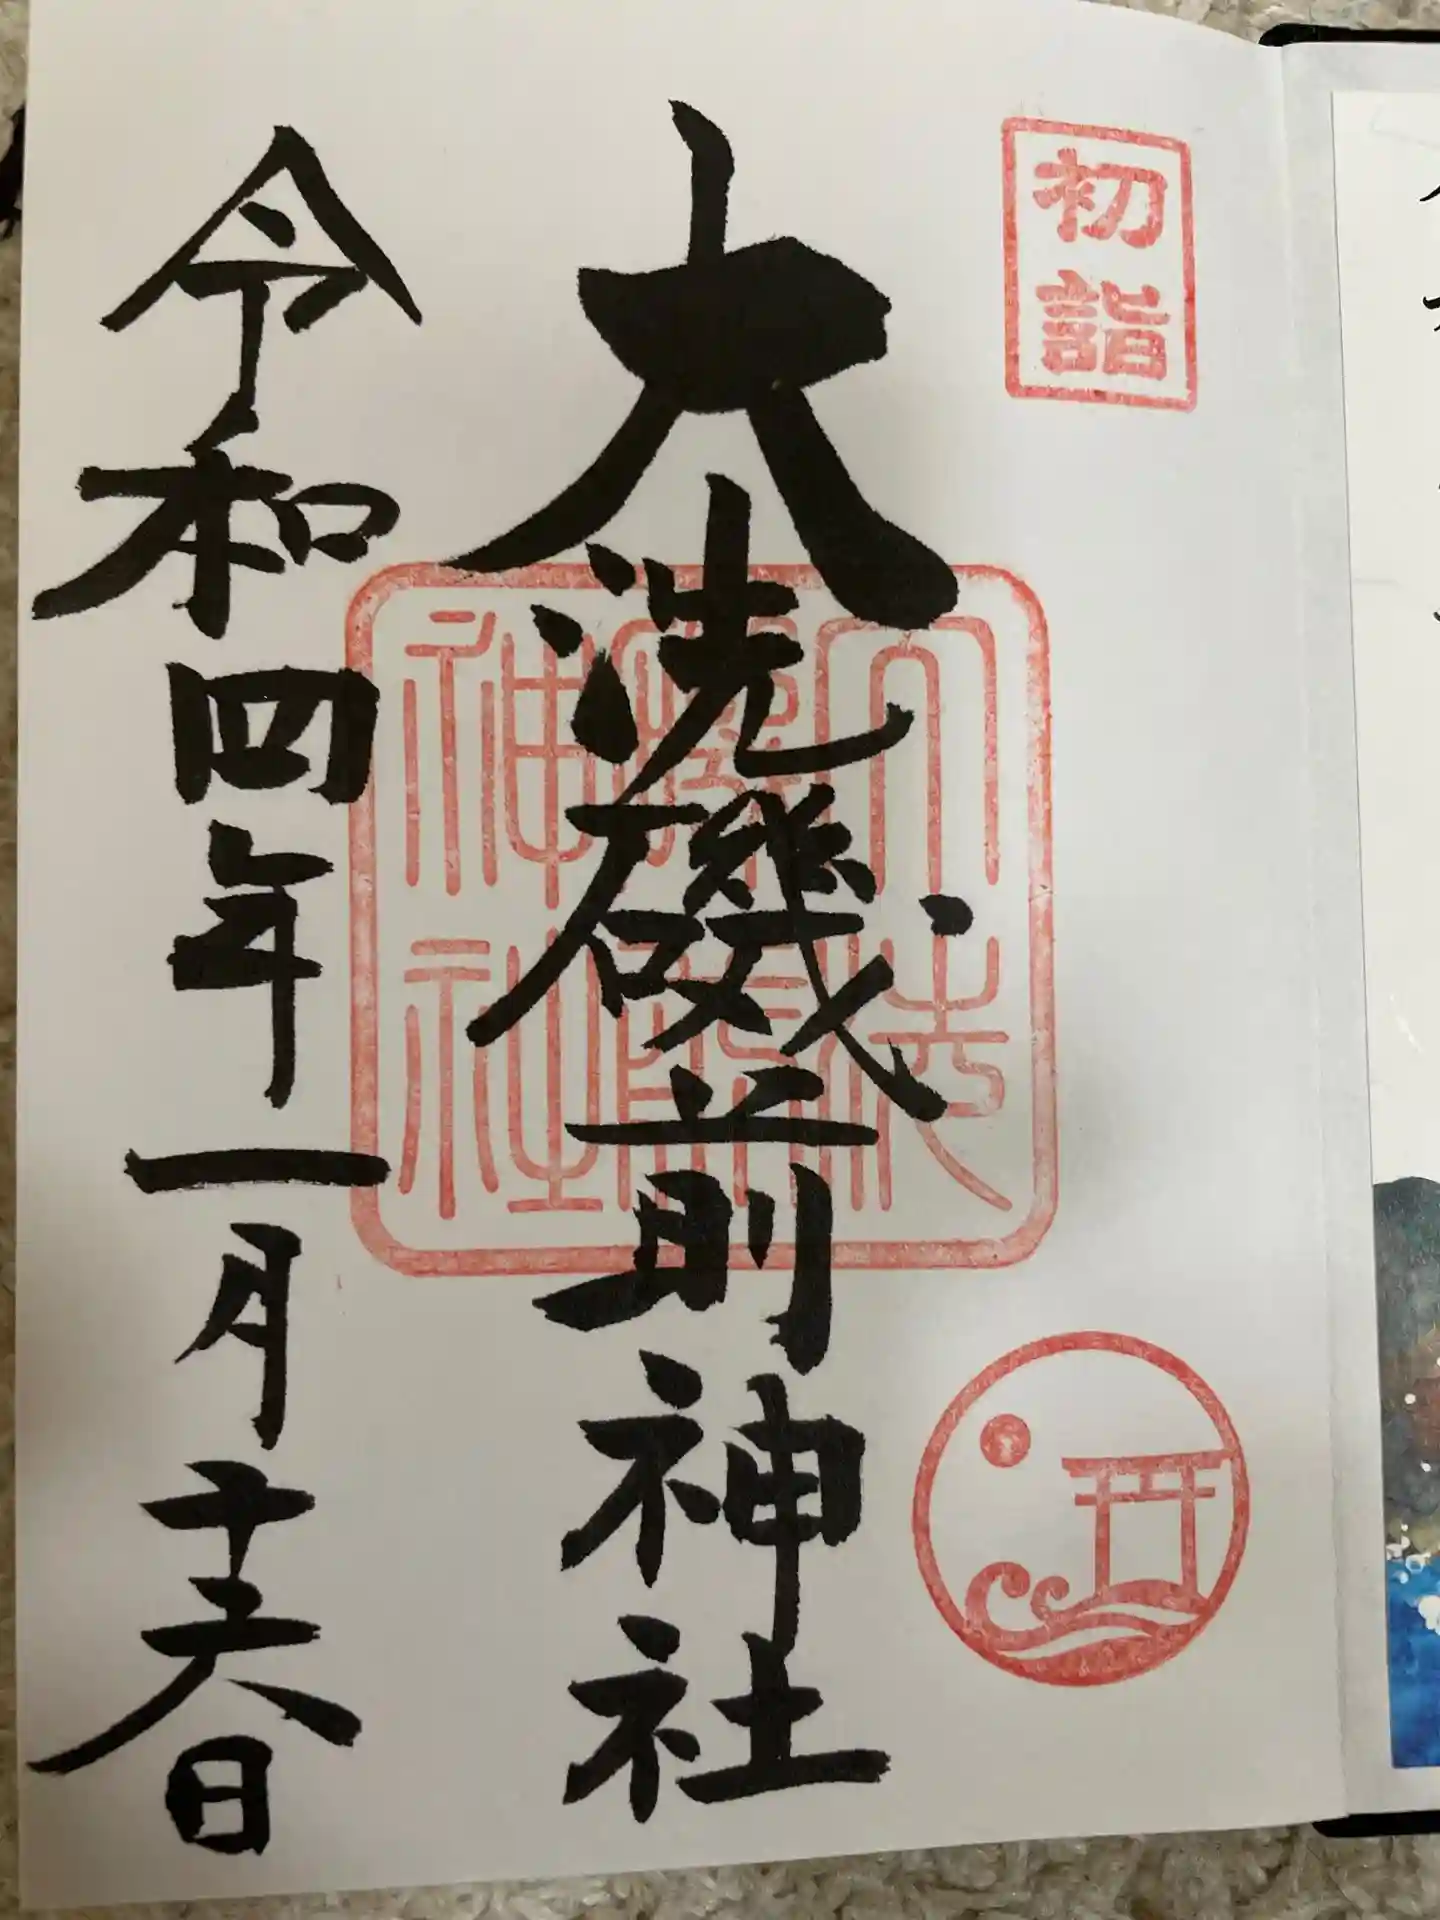 初詣
大洗磯前神社
令和四年一月十六日
大洗
磯前
神社